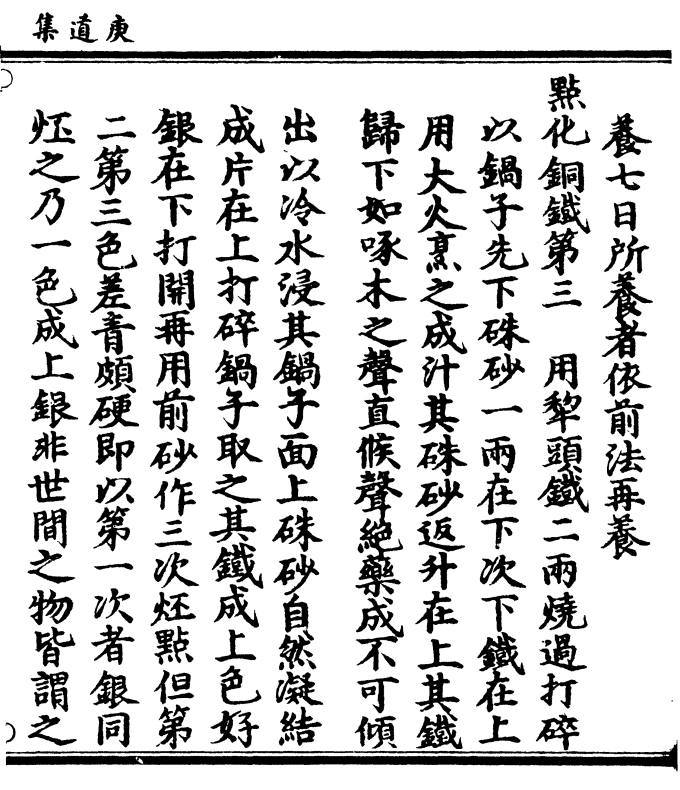 庚道集
養七日所養者依前法再養
點化銅鐵第三　用犁頭鐵二兩燒過打碎
以鍋子先下硃砂一兩在下次下鐵在上
用大火烹之成汁其硃砂返升在上其鐵
歸下如啄木之聲直候聲絕藥成不可傾
出以冷水浸其鍋子面上硃砂自然凝結
成片在上打碎鍋子取之其鐵成上色好
銀在下打開再用前砂作三次炷點但第
二第三色差青頗硬即以第一次者銀同
炷之乃一色成上銀非世間之物皆謂之